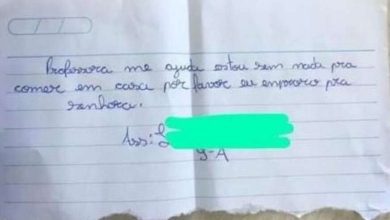 Professora me ajuda estou sem nada pra
comer em casa por favor eu imploro pra
senhora.
Ass: L
9-A